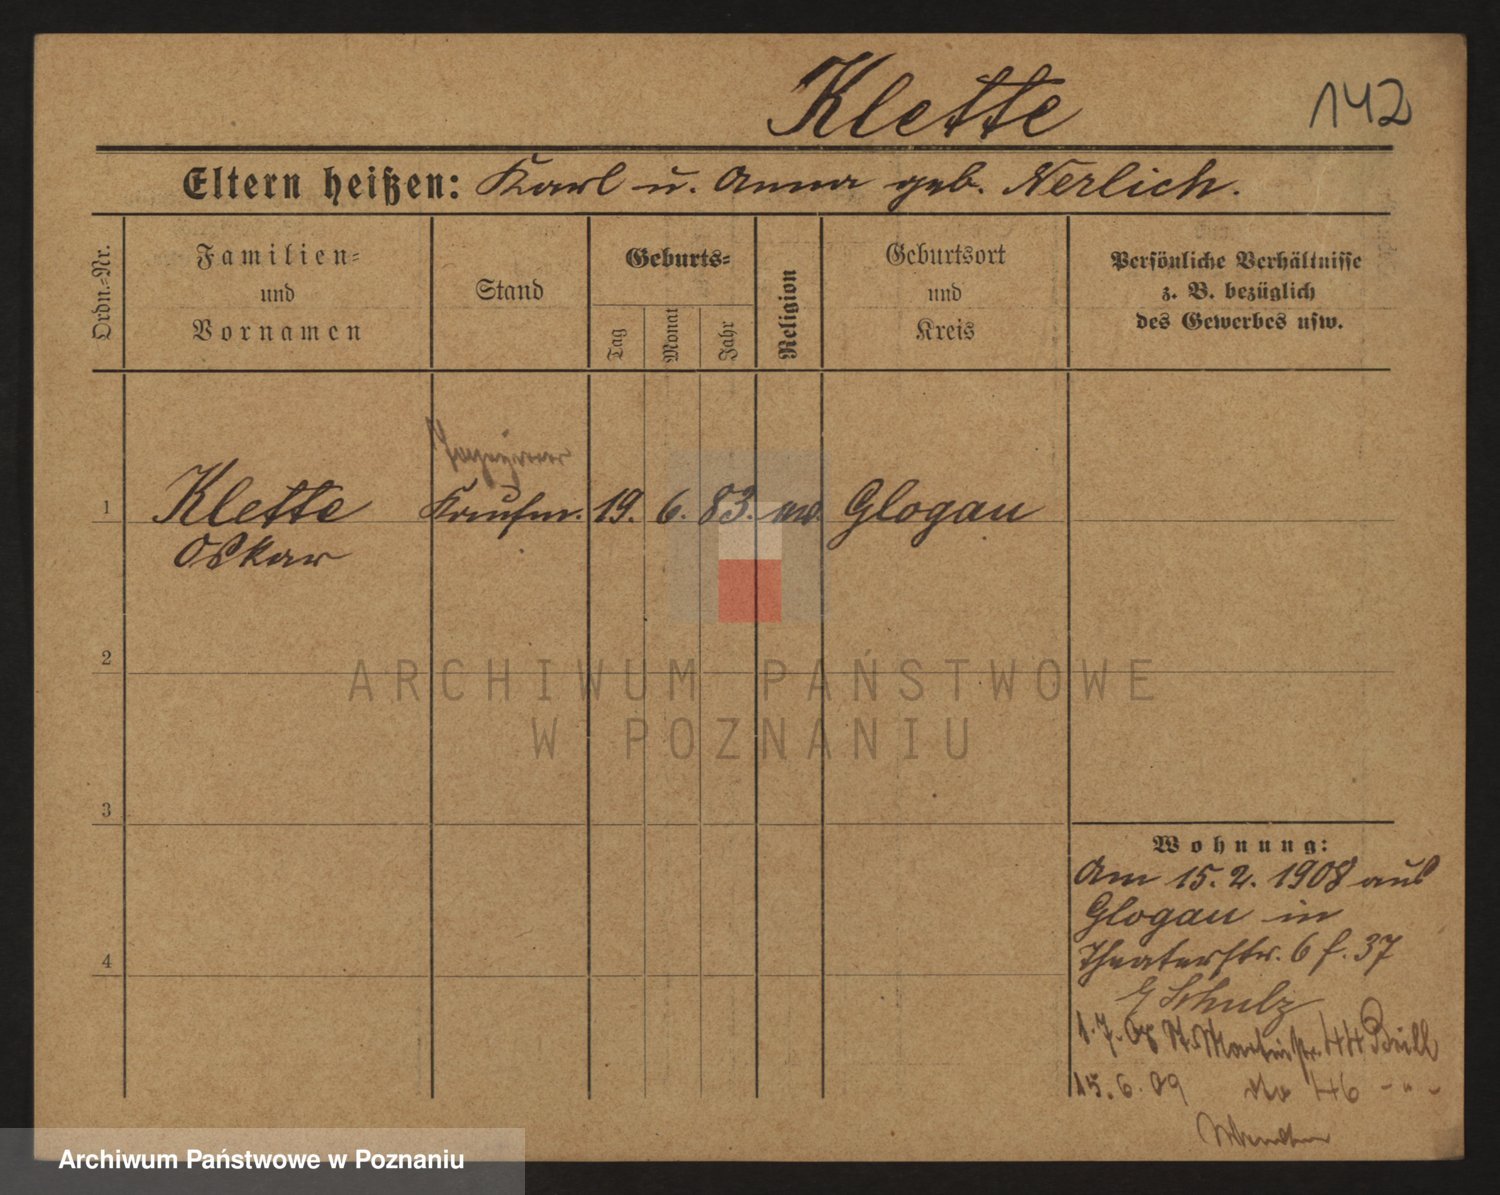 Klette
142
Eltern heißen: Karl u. Anna geb. Nerlich.
Ordn.-Nr.
Familien-
und
Vornamen
Stand
Geburts-
Tag
Monat
Jahr
Religion
Geburtsort
und
Kreis
Persönliche Verhältnisse
z. B. bezüglich
des Gewerbes usw.
1 Klette Kaufm. 19. 6. 83. Glogau
Oskar
2
3
4
Wohnung:
Am 15. 2. 1908 aus
Glogau in
Theaterstr. 6 f. 37
Schulz
1.7.08 St. Martinstr. 44 Brill
15.6.09 46 - " -
ARCHIWUM PAŃSTWOWE
W POZNANIU
Archiwum Państwowe w Poznaniu